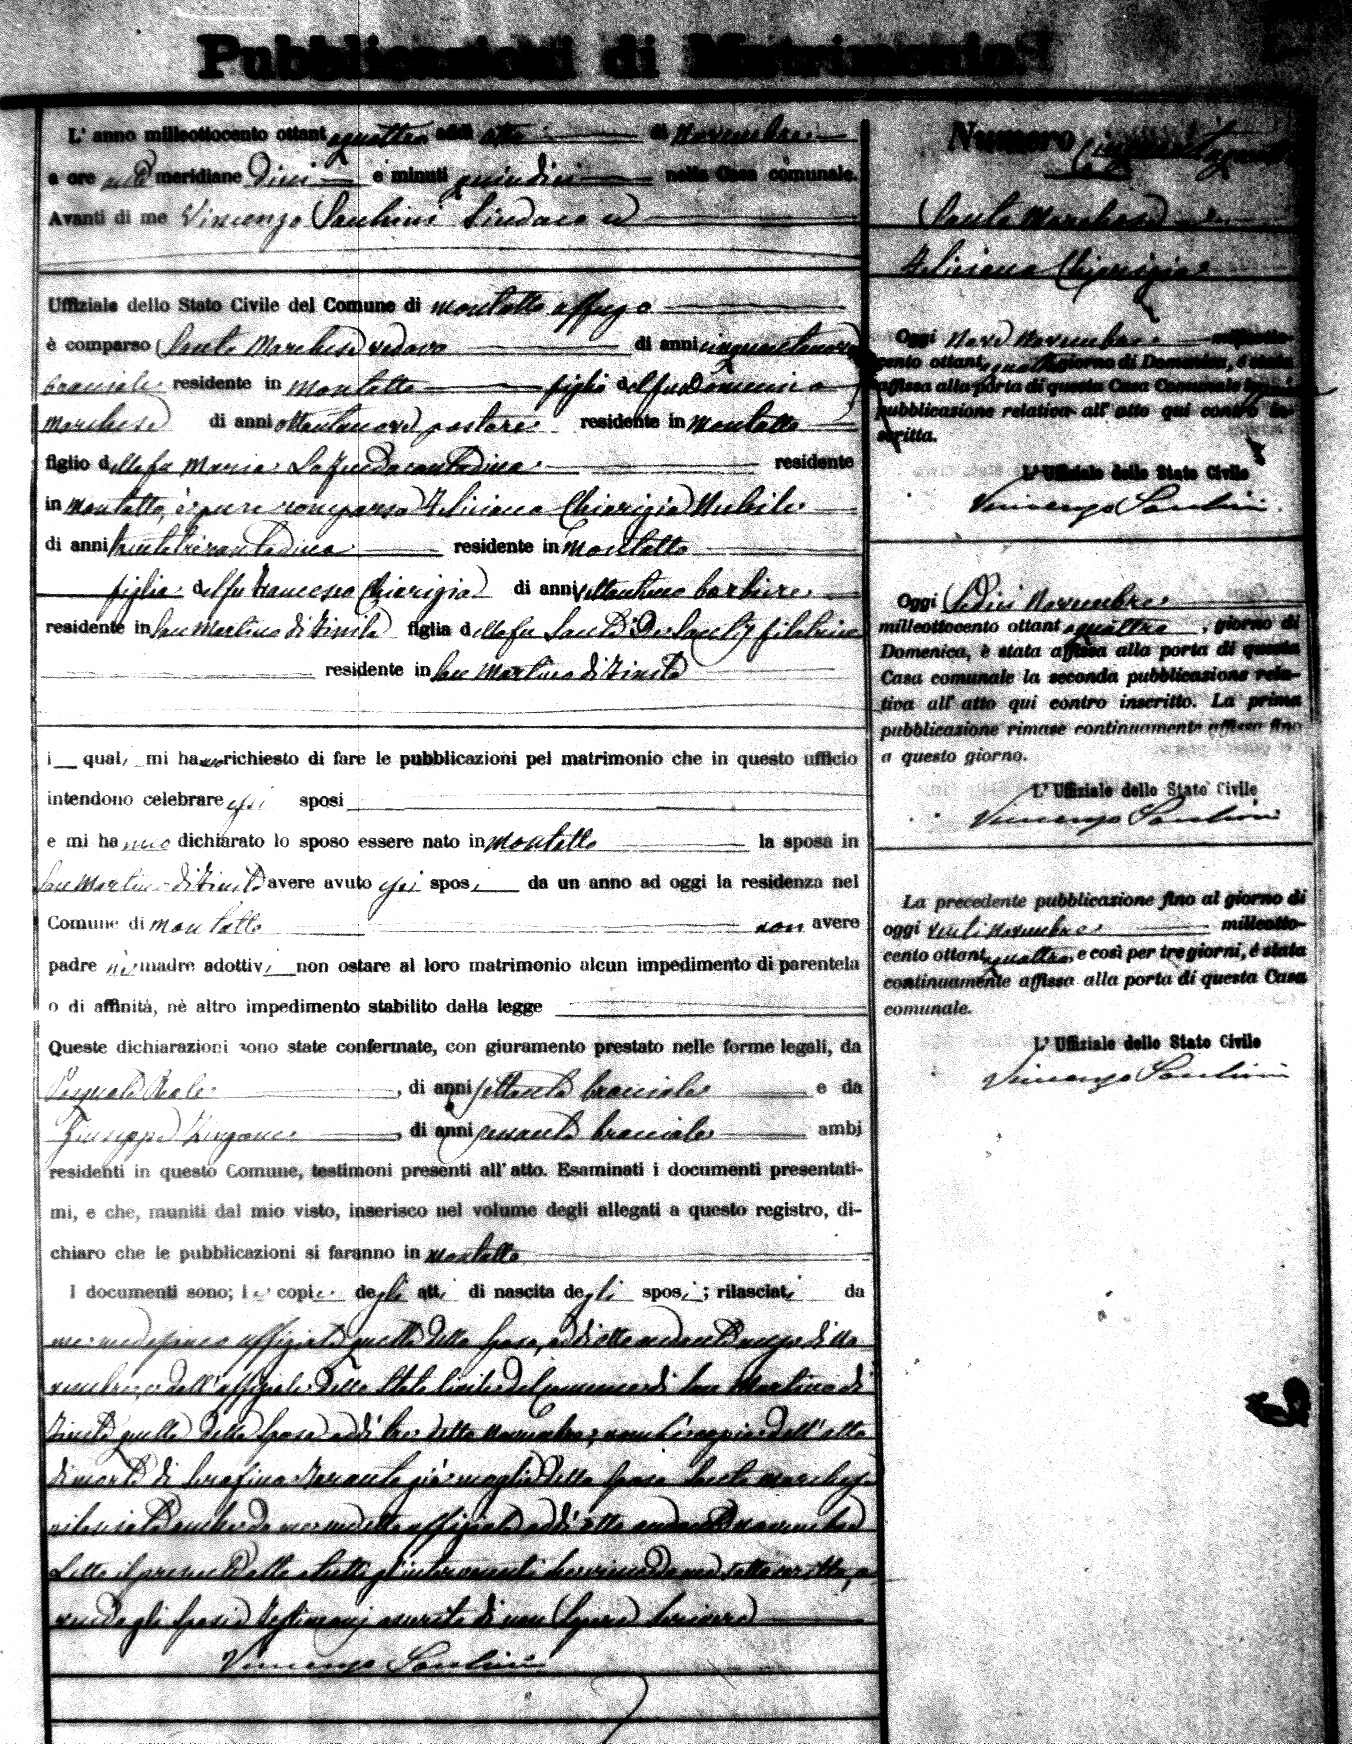 Pubblicazioni di Matrimonio
L' anno milleottocento ottantaquattro addì otto di Novembre
a ore anti meridiane dieci e minuti quindici nella Casa comunale.
Avanti di me Vincenzo Sindaco ed
Uffiziale dello Stato Civile del Comune di Montalto Uffugo
è comparso Santo Marchese vedovo di anni cinquantanove
bracciale residente in Montalto figlio del fu Domenico
Marchese di anni ottantanove pastore residente in Montalto
figlio della fu Maria contadina residente
in Montalto, è pure comparsa Feliciana Chiarigia Nubile
di anni trentatre contadina residente in Montalto
figlia del fu Francesco Chiarigia di anni barbiere
residente in San Martino di Finita figlia della fu filatrice
residente in San Martino di Finita
i quali mi hanno richiesto di fare le pubblicazioni pel matrimonio che in questo ufficio
intendono celebrare essi sposi
e mi hanno dichiarato lo sposo essere nato in Montalto la sposa in
San Martino di Finita avere avuto essi sposi da un anno ad oggi la residenza nel
Comune di Montalto non avere
padre nè madre adottivi non ostare al loro matrimonio alcun impedimento di parentela
o di affinità, nè altro impedimento stabilito dalla legge
Queste dichiarazioni sono state confermate, con giuramento prestato nelle forme legali, da
Pasquale Reale, di anni settanta bracciale e da
Giuseppe, di anni sessanta bracciale ambi
residenti in questo Comune, testimoni presenti all' atto. Esaminati i documenti presentati-
mi, e che, muniti dal mio visto, inserisco nel volume degli allegati a questo registro, di-
chiaro che le pubblicazioni si faranno in Montalto
I documenti sono; le copie degli atti di nascita degli sposi; rilasciati da
me medesimo uffiziale quella dello sposo, addì otto andante mese di No-
vembre, e dall' uffiziale dello Stato Civile del Comune di San Martino di
Finita quella della sposa addì tre detto Novembre; nonchè copia dell' atto
di morte di Serafina già moglie dello sposo Santo Marchese
rilasciata anche da me uffiziale addì otto andante Novembre
Letto il presente atto a tutti gl' intervenuti da me sottoscritto,
gli sposi e testimoni asserito di non sapere scrivere
Vincenzo
Numero
Santo Marchese e
Feliciana Chiarigia
Oggi nove Novembre milleotto-
cento ottantaquattro giorno di Domenica, è stata
affissa alla porta di questa Casa Comunale la prima
pubblicazione relativa all' atto qui contro in-
scritta.
L' Uffiziale dello Stato Civile
Vincenzo
Oggi sedici Novembre
milleottocento ottantaquattro, giorno di
Domenica, è stata affissa alla porta di questa
Casa comunale la seconda pubblicazione rela-
tiva all' atto qui contro inscritto. La prima
pubblicazione rimase continuamente affissa fino
a questo giorno.
L' Uffiziale dello Stato Civile
Vincenzo
La precedente pubblicazione fino al giorno di
oggi venti Novembre milleotto-
cento ottantaquattro, e così per tre giorni, è stata
continuamente affissa alla porta di questa Casa
comunale.
L' Uffiziale dello Stato Civile
Vincenzo